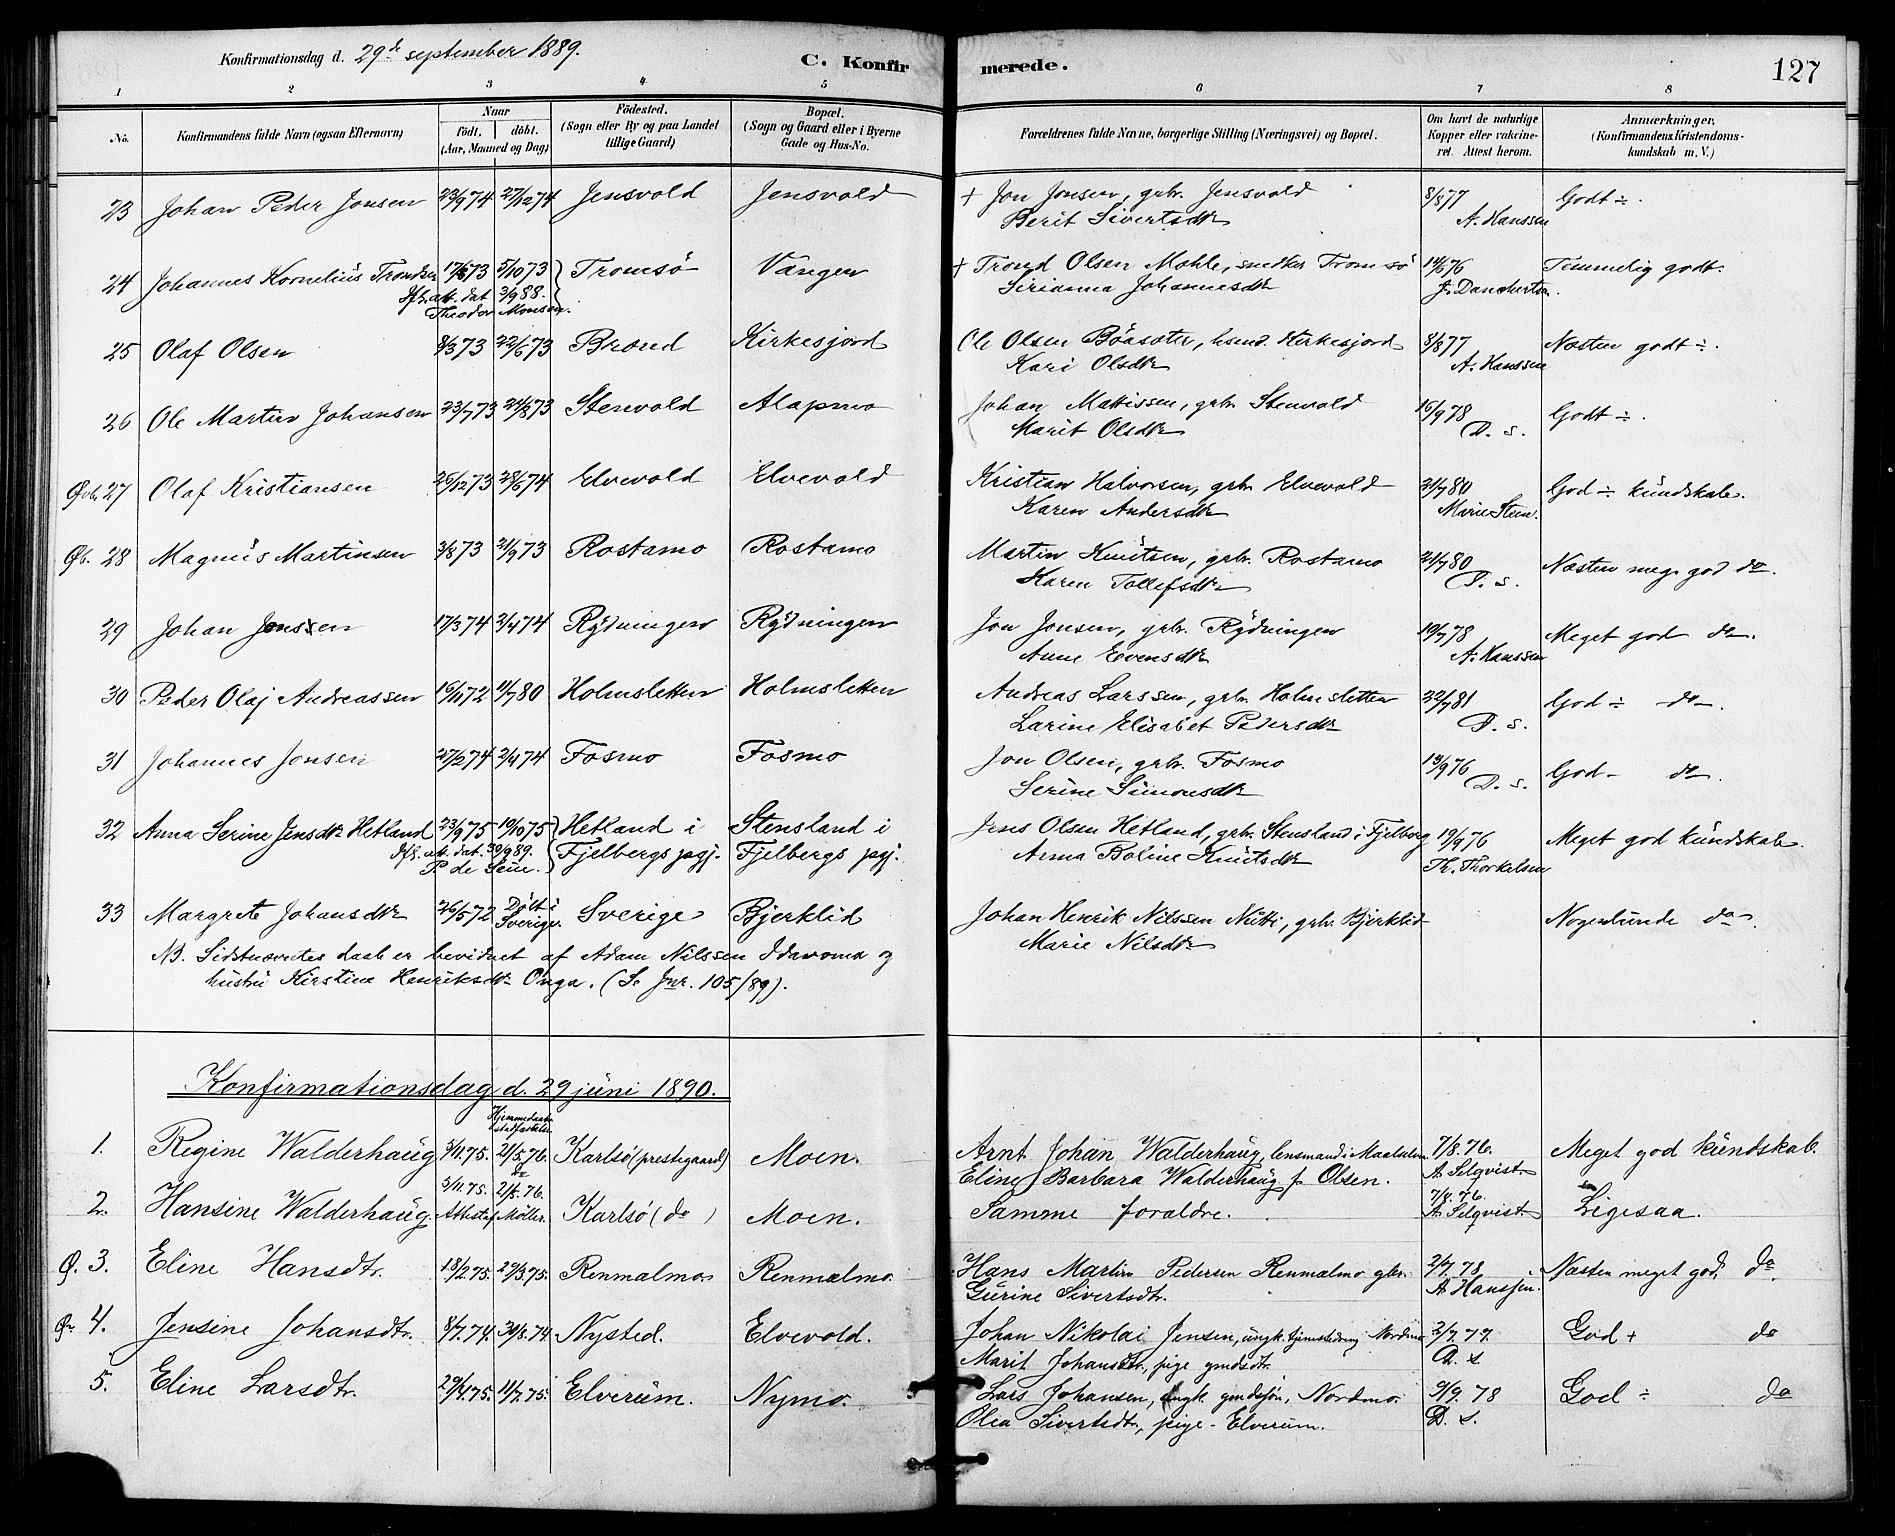 Konfirmationsdag d. 29de september 1889.
C. Konfirmerede.
127
1 2 3 4 5 6 7 8
No.
Konfirmandens fulde Navn (ogsaa Efternavn)
Naar
födt. döbt.
(Aar, Maaned og Dag)
Födested.
(Sogn eller By og paa Landet
tillige Gaard)
Bopæl.
(Sogn og Gaard eller i Byerne
Gade og Hus-No.
Forældrenes fulde Navne, borgerlige Stilling (Næringsvei) og Bopæl.
Om havt de naturlige
Kopper eller vakcine-
ret. Attest herom.
Anmærkninger,
(Konfirmandens Kristendoms-
kundskab m. V.)
23 Johan Peder Jonsen 23/9 74 27/12 74 Jensvold Jensvold + Jon Jonsen, grbr. Jensvold 8/8 77 Godt ÷.
Berit Sivertsdtr A. Hanssen
24 Johannes Kornelius Trondsen 17/6 73 5/10 73 Tromsö Vangen + Trond Olsen Mohle, snedker Tromsö 14/6 76 Temmelig godt.
Dfs. att. dat. 3/9 88. Sirianna Johannesdtr J. Danchertsen.
Theodor Monsen.
25 Olaf Olsen 8/3 73 22/6 73 Broud Kirkesjord Ole Olsen Böasæter, hsmd. Kirkesjord 8/8 77 Næsten godt ÷.
Kari Olsdtr A. Hanssen
26 Ole Martin Johansen 23/7 73 24/8 73 Stenvold Alapmo Johan Mattissen, grbr. Stenvold 16/9 78 Godt ÷.
Marit Olsdtr D. s.
Øvb. 27 Olaf Kristiansen 26/12 73 28/6 74 Elvevold Elvevold Kristian Halvorsen, grbr. Elvevold 21/7 80 God ÷ kundskab.
Karen Andersdtr Marie Steen.
Øb. 28 Magnus Martinsen 3/8 73 21/9 73 Rostamo Rostamo Martin Knutsen, grbr. Rostamo 21/7 80 Næsten meg. god do.
Karen Tollefsdtr D. s.
29 Johan Jonssen 17/3 74 2/4 74 Rydningen Rydningen Jon Jonsen, grbr. Rydningen 19/7 78 Meget god do.
Anne Evensdtr A. Hanssen
30 Peder Olaj Andreassen 16/11 72 11/7 80 Holmsletten Holmsletten Andreas Larssen, grbr. Holmsletten 22/7 81 God ÷ do.
Larine Elisabet Pedersdtr D. s.
31 Johannes Jonsen 27/2 74 2/4 74 Fosmo Fosmo Jon Olsen, grbr. Fosmo 13/9 76 God - do.
Serine Simonsdtr D. s.
32 Anna Serine Jensdtr Hetland 23/9 75 19/10 75 Hetland i Stensland i Jens Olsen Hetland, grbr. Stensland i Fjelberg 19/9 76 Meget god kundskab.
Dfs. att. dat. 30/9 89. Fjelbergs pgj. Fjelbergs pgj. Anna Boline Knutsdtr Th. Thorkelsen
P. de Seue.
33 Margrete Johansdtr 26/5 72 Döbt i Sverige. Sverige Bjerklid Johan Henrik Nilssen Nutti, grbr. Bjerklid Nogenlunde do.
Marie Nilsdtr
NB. Sidstnævntes daab er bevidnet af Adam Nilssen Idavoma og
hustru Kirstine Henriksdtr Onga. (Se Jnr. 105/89).
Konfirmationsdag d. 29 juni 1890.
Hjemmedaaben
stadfæstelse
1. Regine Walderhaug 3/11.75. 21/5.76. Karlsö (prestegaard) Moen. Arnt Johan Walderhaug, lensmand i Maalselven 7/8.76. Meget god kundskab.
do Eline Barbara Walderhaug f. Olsen. A. Selqvist.
2. Hansine Walderhaug. 3/11.75. 21/5.76. Karlsö (do) Moen. Samme forældre. 7/8.76. Ligesaa.
Attest af Möller. A. Selqvist.
Ø. 3. Eline Hansdtr. 18/2.75. 29/3.75. Renmalmo. Renmælmo. Hans Martin Pedersen Renmælmo gbr. 2/7.78. Næsten meget god. do.
Gurine Sivertsdtr. A. Hanssen.
Øv. 4. Jensine Johansdtr. 8/7.74. 30/8.74 Nysted. Elvevold. Johan Nikolai Jensen, ungk. tjenestedreng Nordmo 2/7.77. God + do
Marit Johansdtr., pige gmdsdtr. D. s.
5. Eline Larsdtr. 29/4.75. 11/7.75. Elverum. Nymo. Lars Johansen, ungk. gmdssön, Nordmo. 9/9.78 God ÷ do
Olea Sivertsdtr, pige - Elverum. D. s.